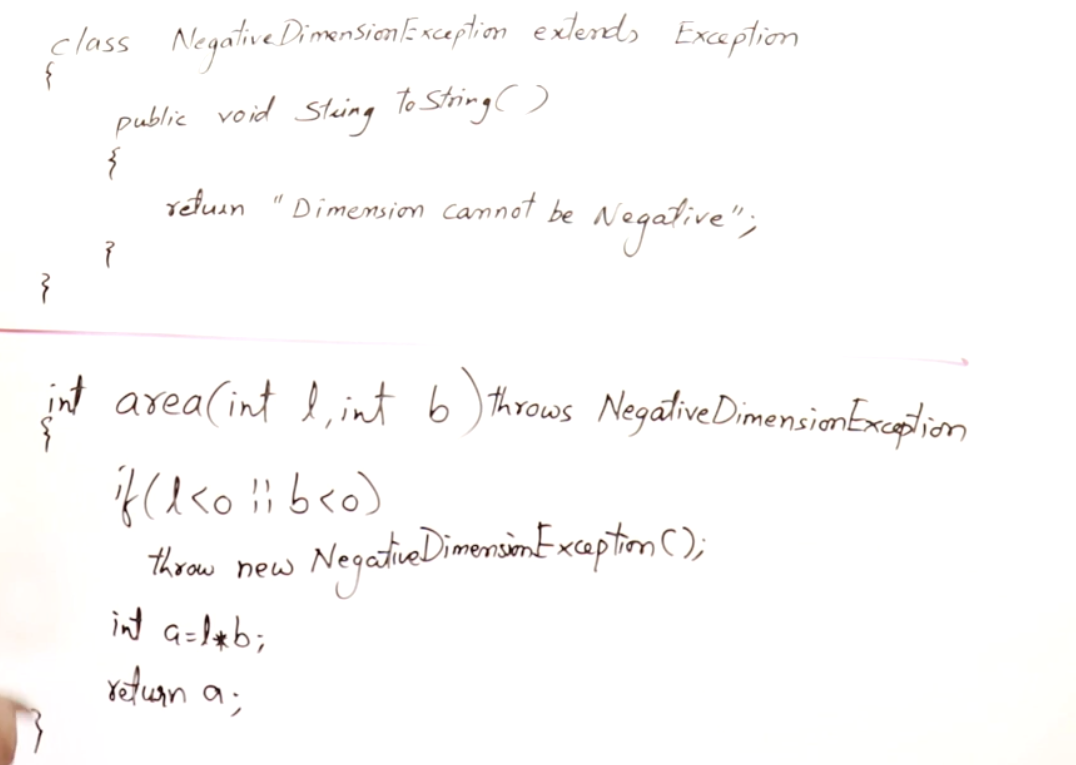 class NegativeDimensionException extends Exception
{
public void String toString()
{
return "Dimension cannot be Negative";
}
}
int area(int l, int b) throws NegativeDimensionException
{
if(l<0 || b<0)
throw new NegativeDimensionException();
int a=l*b;
return a;
}